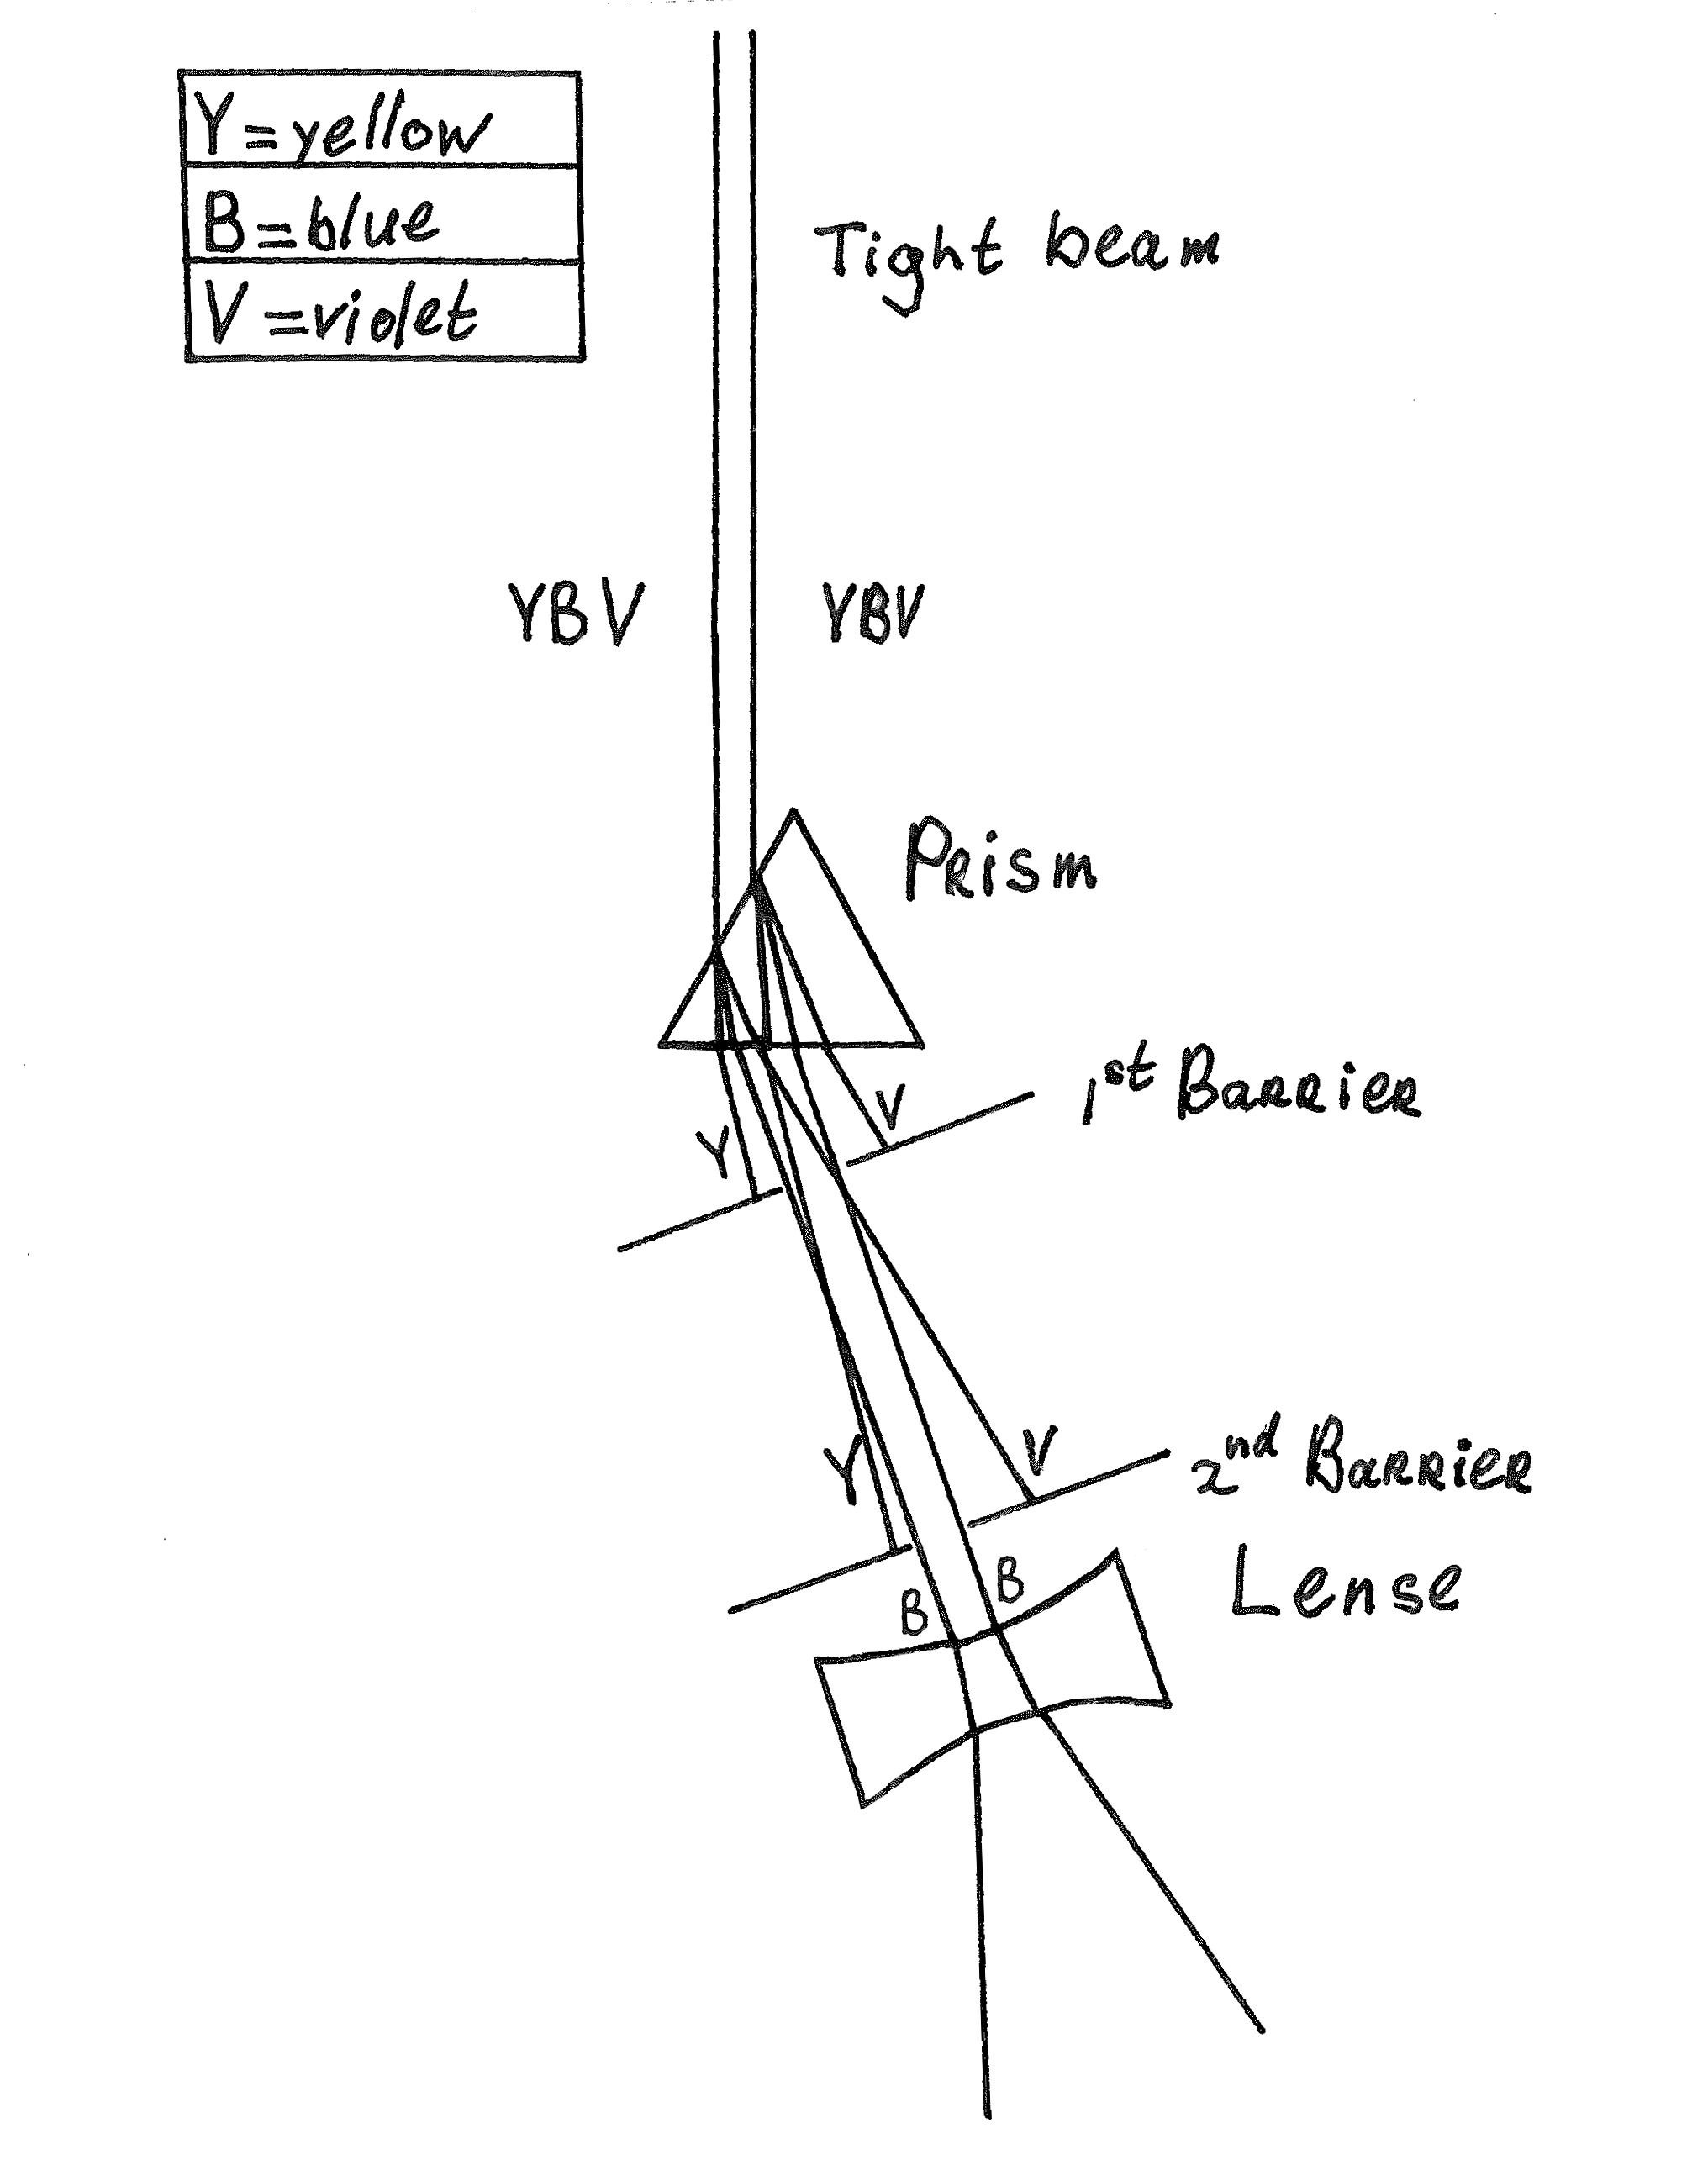 Y=yellow
B=blue
V=violet
Tight beam
YBV YBV
Prism
1st Barrier
V
Y
2nd Barrier
V
Y
Lense
B
B